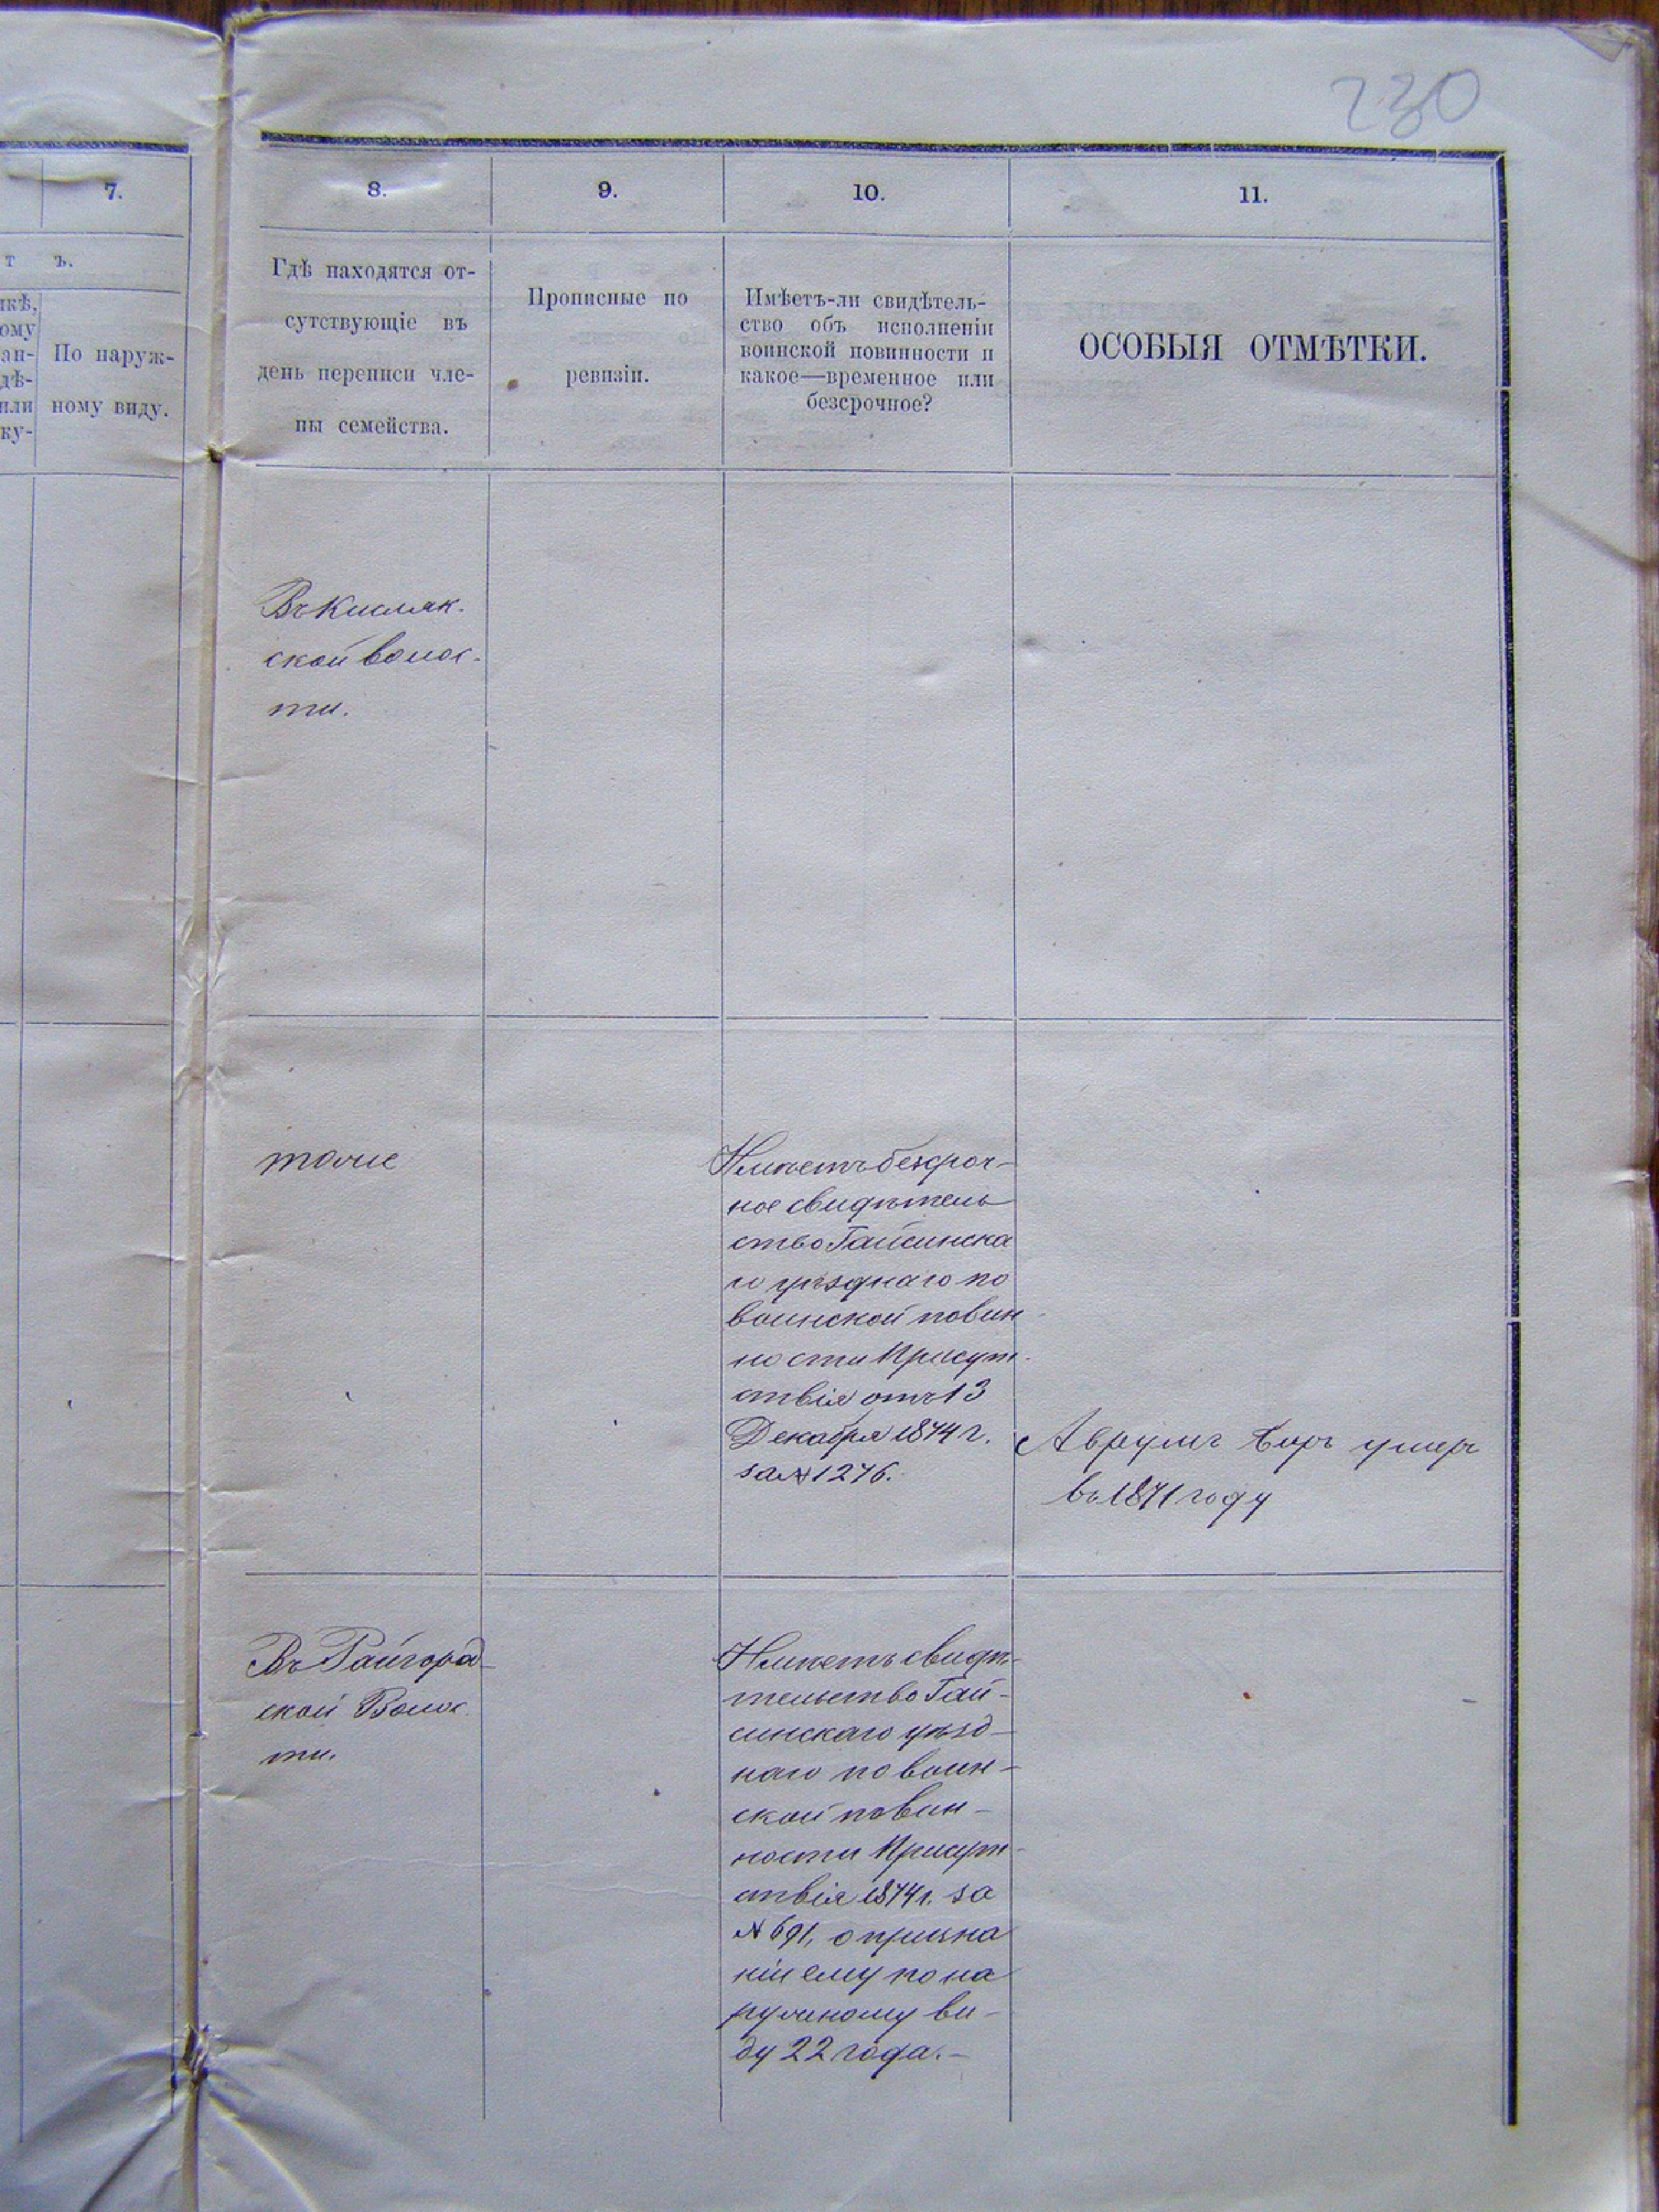 230
7.
8.
9.
10.
11.
т ъ.
По наруж-
ному виду.
Гдѣ находятся от-
сутствующіе въ
день переписи чле-
ны семейства.
Прописные по
ревизіи.
Имѣетъ-ли свидѣтель-
ство объ исполненіи
воинской повинности и
какое—временное или
безсрочное?
ОСОБЫЯ ОТМѢТКИ.
Въ Кисляк-
ской волос-
ти.
тоже
Имѣетъ безсроч-
ное свидѣтель
ство Гайсинска
го уѣзднаго по
воинской повин
ности Присут-
ствія отъ 13
Декабря 1874 г.
за № 1276.
Аврумъ Беръ умеръ
въ 1871 году
Въ Райгород-
ской Волос
ти.
Имѣетъ свидѣ-
тельство Гай-
синскаго уѣзд-
наго по воин-
ской повин-
ности Присут-
ствія 1874 г. за
№ 691, о призна
ніи ему по на
ружному ви-
ду 22 года.-